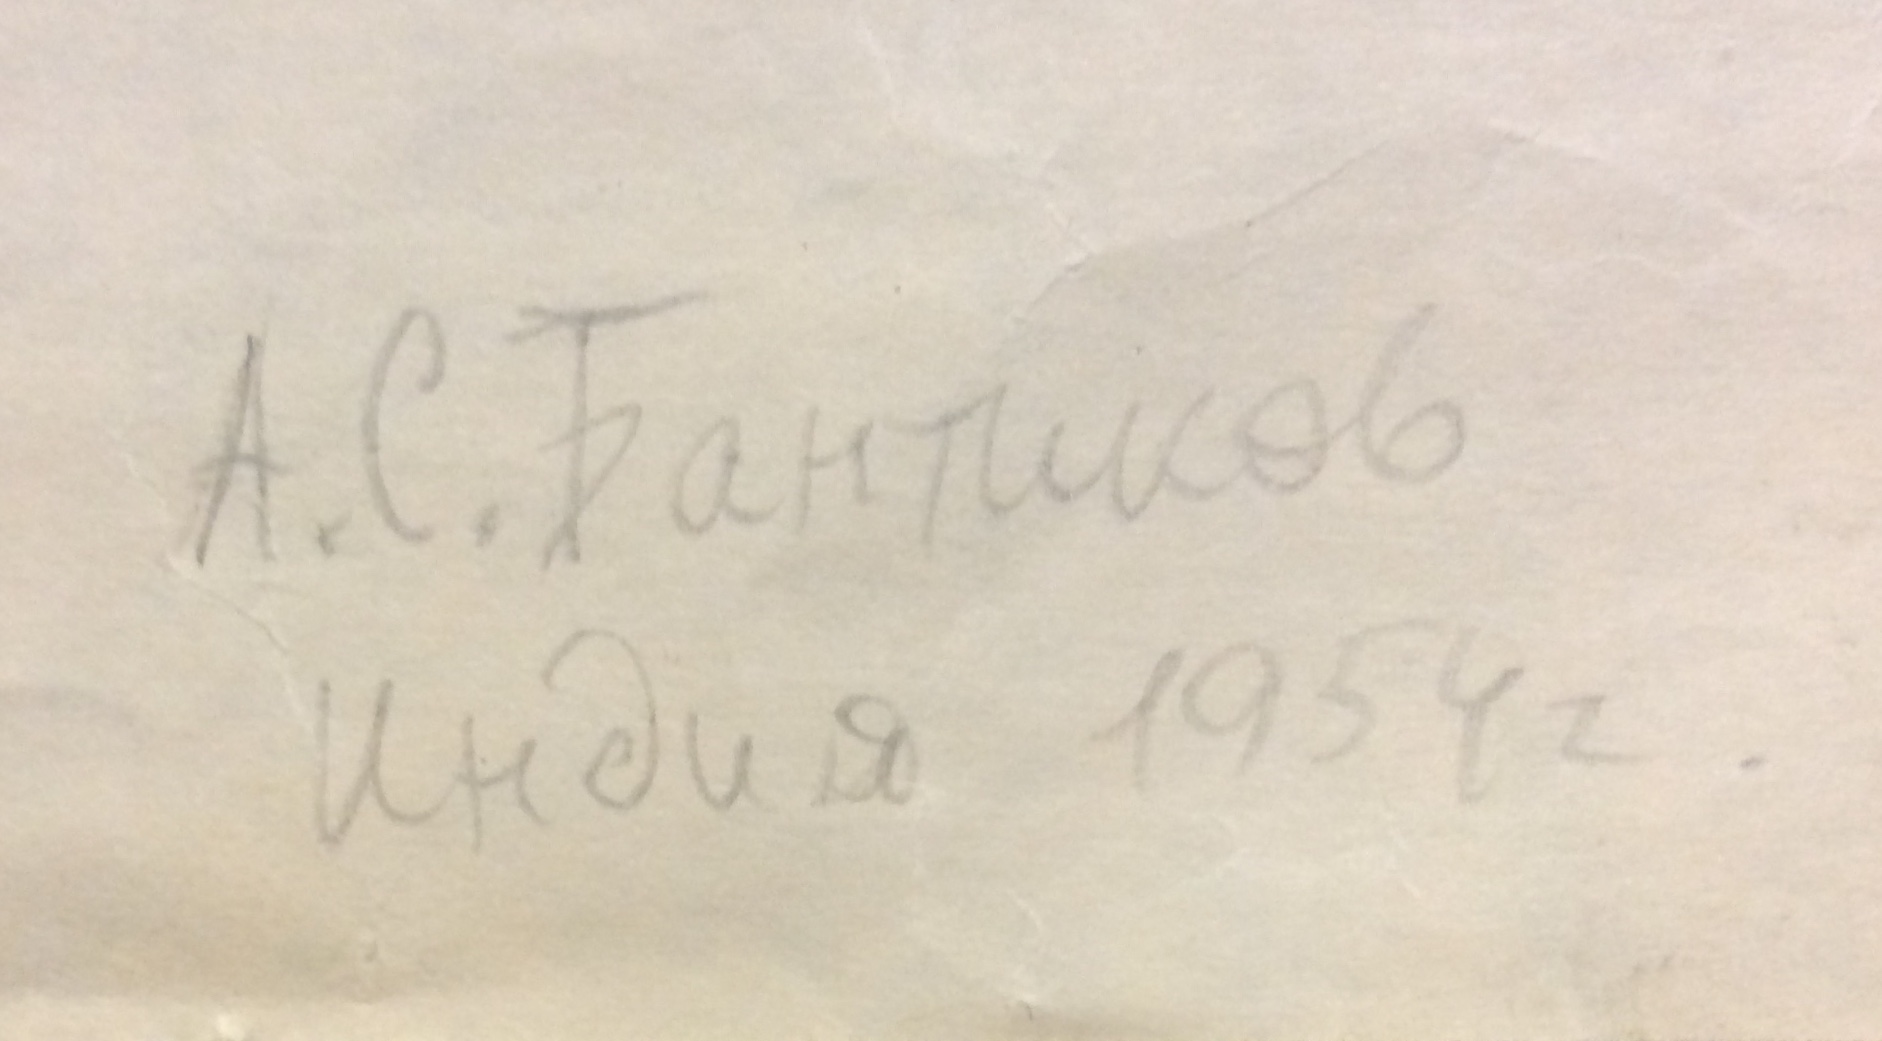 А.С. Бантиков
Индия 1954г.